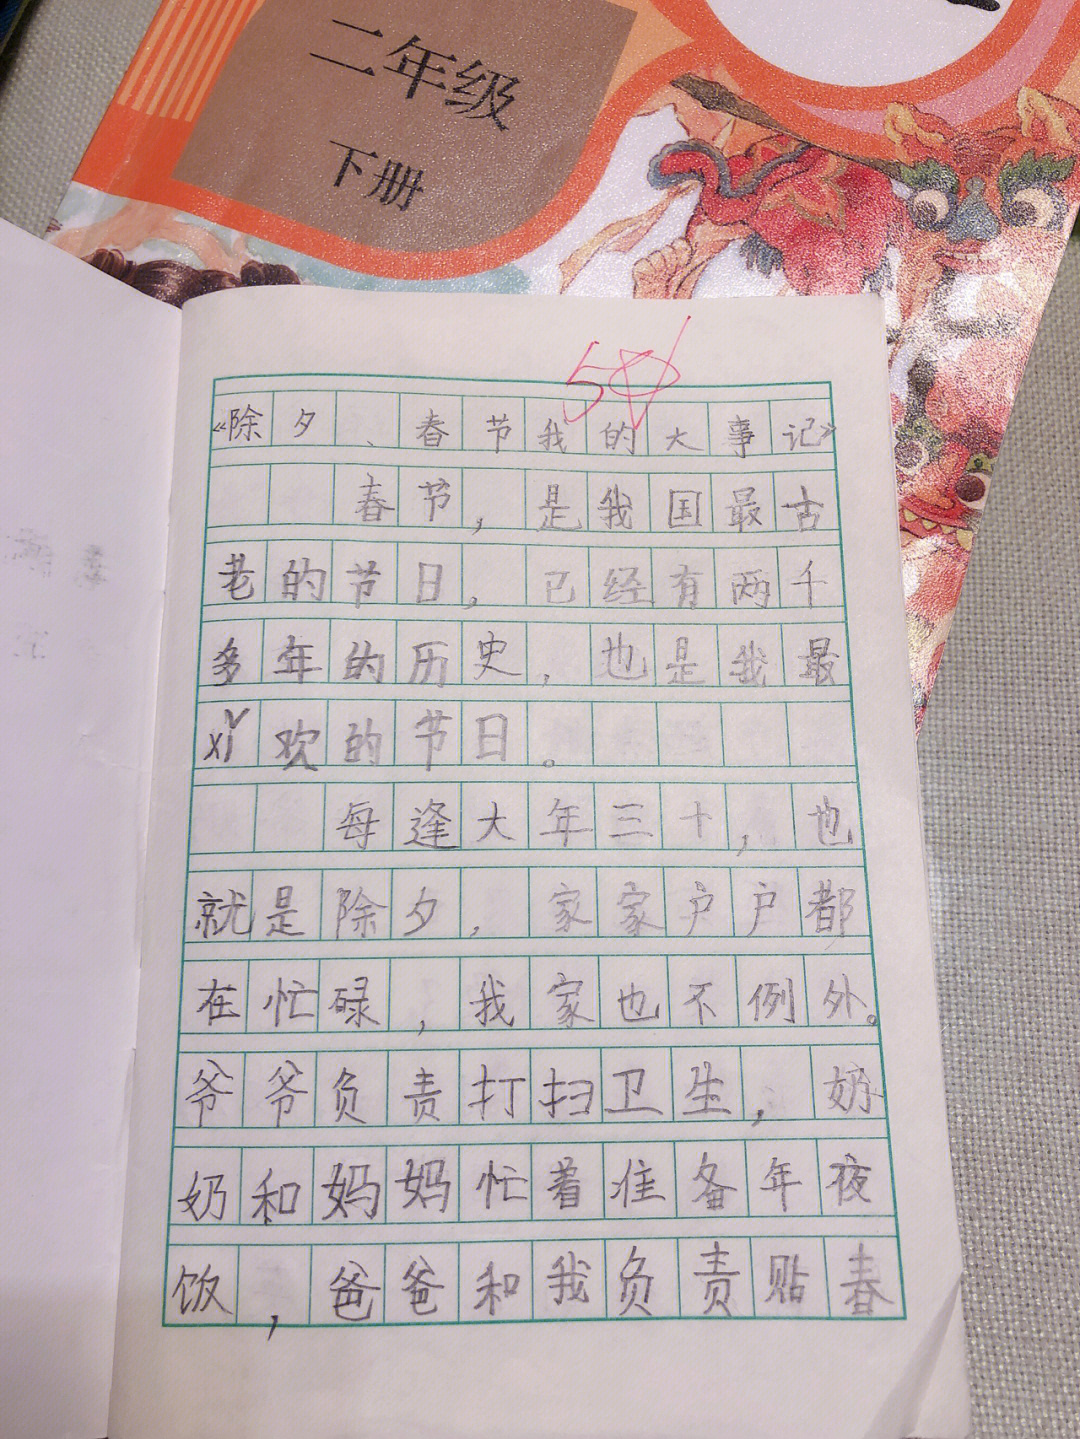 二年级
下册
5☆
《除夕、春节我的大事记》
春节，是我国最古
老的节日，已经有两千
多年的历史，也是我最
xǐ欢的节日。
每逢大年三十，也
就是除夕，家家户户都
在忙碌，我家也不例外。
爷爷负责打扫卫生，奶
奶和妈妈忙着准备年夜
饭，爸爸和我负责贴春